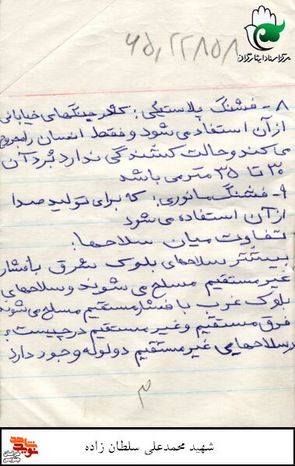 مرکز اسناد ایثارگران
۶۵،۲۲۸۵۸
۸ - فشنگ پلاستیکی: که در جنگهای خیابانی
از آن استفاده می شود و فقط انسان را مجروح
می کند و حالت کشندگی ندارد بُرد آن
۳۰ تا ۳۵ متر می باشد
۹ - فشنگ مانوری: که برای تولید صدا
از آن استفاده می شود
تفاوت میان سلاحها:
بیشتر سلاحهای بلوک شرق با فشار
غیر مستقیم مسلح می شوند و سلاحهای
بلوک غرب با فشار مستقیم مسلح می شوند
فرق مستقیم و غیر مستقیم در چیست؟
در سلاحهایی غیر مستقیم دو لوله وجود دارد
۳
شهید محمدعلی سلطان زاده